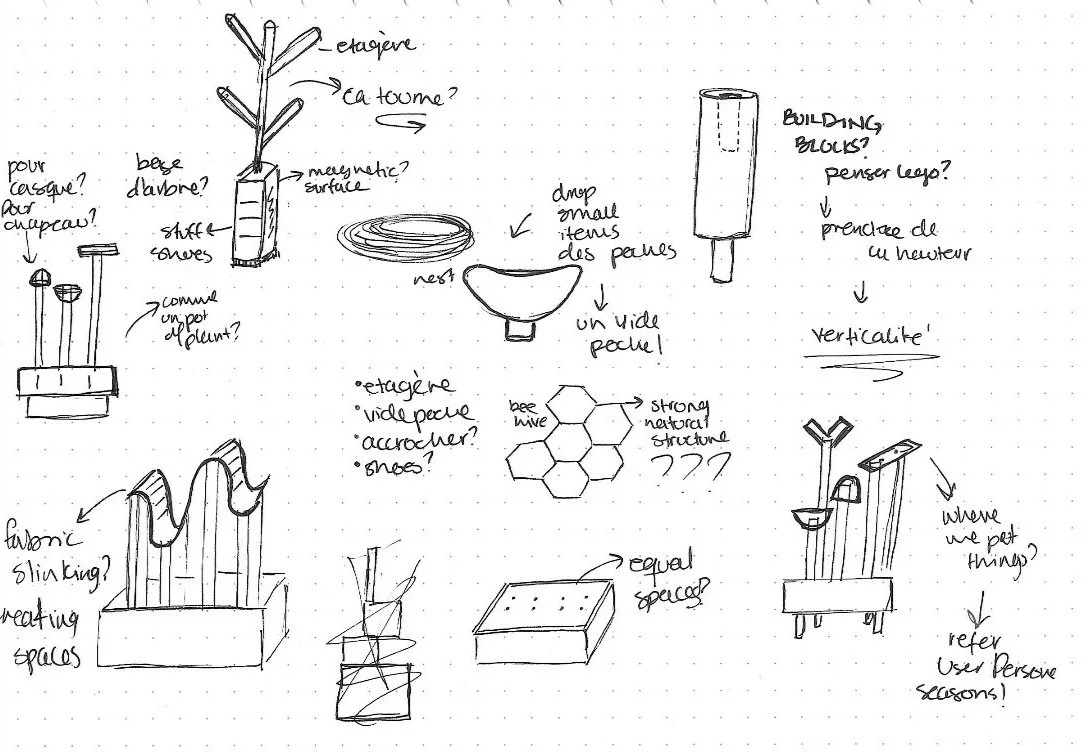 etagère
Ca tourne?
pour
casque?
Pour
chapeau?
base
d'arbre?
magnetic?
surface
stuff
shoes
comme
un pot
de plant?
drop
small
items
des poches
nest
un vide
poche!
BUILDING
BLOCKS?
penser lego?
prendre de
la hauteur
verticalité!
•etagère
•vide poche
•accrocher?
•shoes?
bee
hive
strong
natural
structure
???
fabric
slinking?
reating
spaces
equal
spaces?
where
we put
things?
refer
User Persona
seasons!